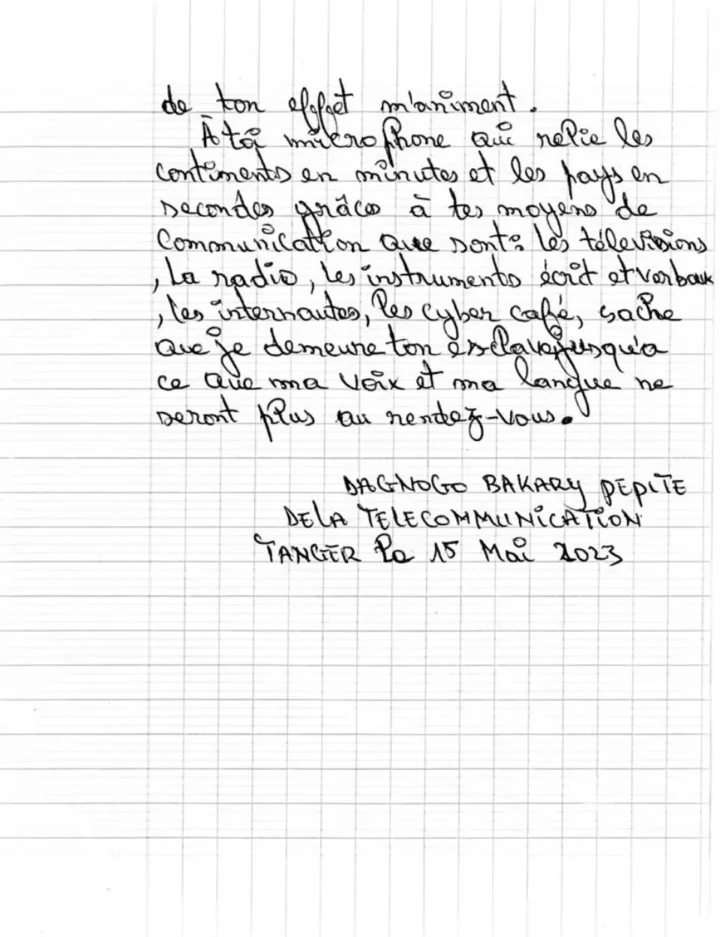 de ton effet m'animent.
À toi microphone qui relie les
continents en minutes et les pays en
secondes grâce à tes moyens de
Communication que sont: les télévisions
, la radio, les instruments écrit et verbaux
, les internautes, les cyber café, sache
que je demeure ton esclave jusqu'a
ce que ma voix et ma langue ne
seront plus au rendez-vous.
DAGNOGO BAKARY PEPITE
DELA TELECOMMUNICATION
TANGER le 15 Mai 2023